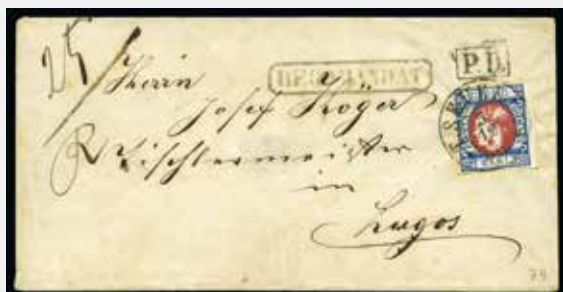 25
RECOMANDAT
P.D.
Herrn
Josef Röger
Tischlermeister
in
Lugos